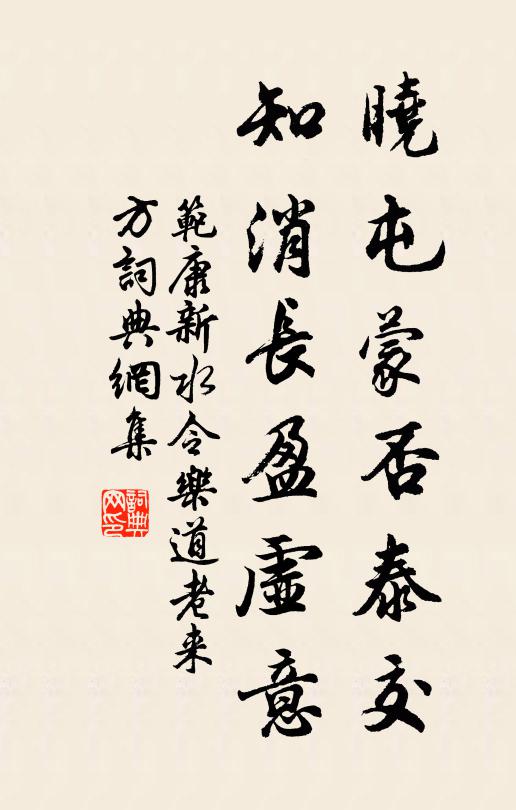 曉屯蒙否泰交
知消長盈虛意
範康新水令樂道老来
方詞典網集
詞典網印